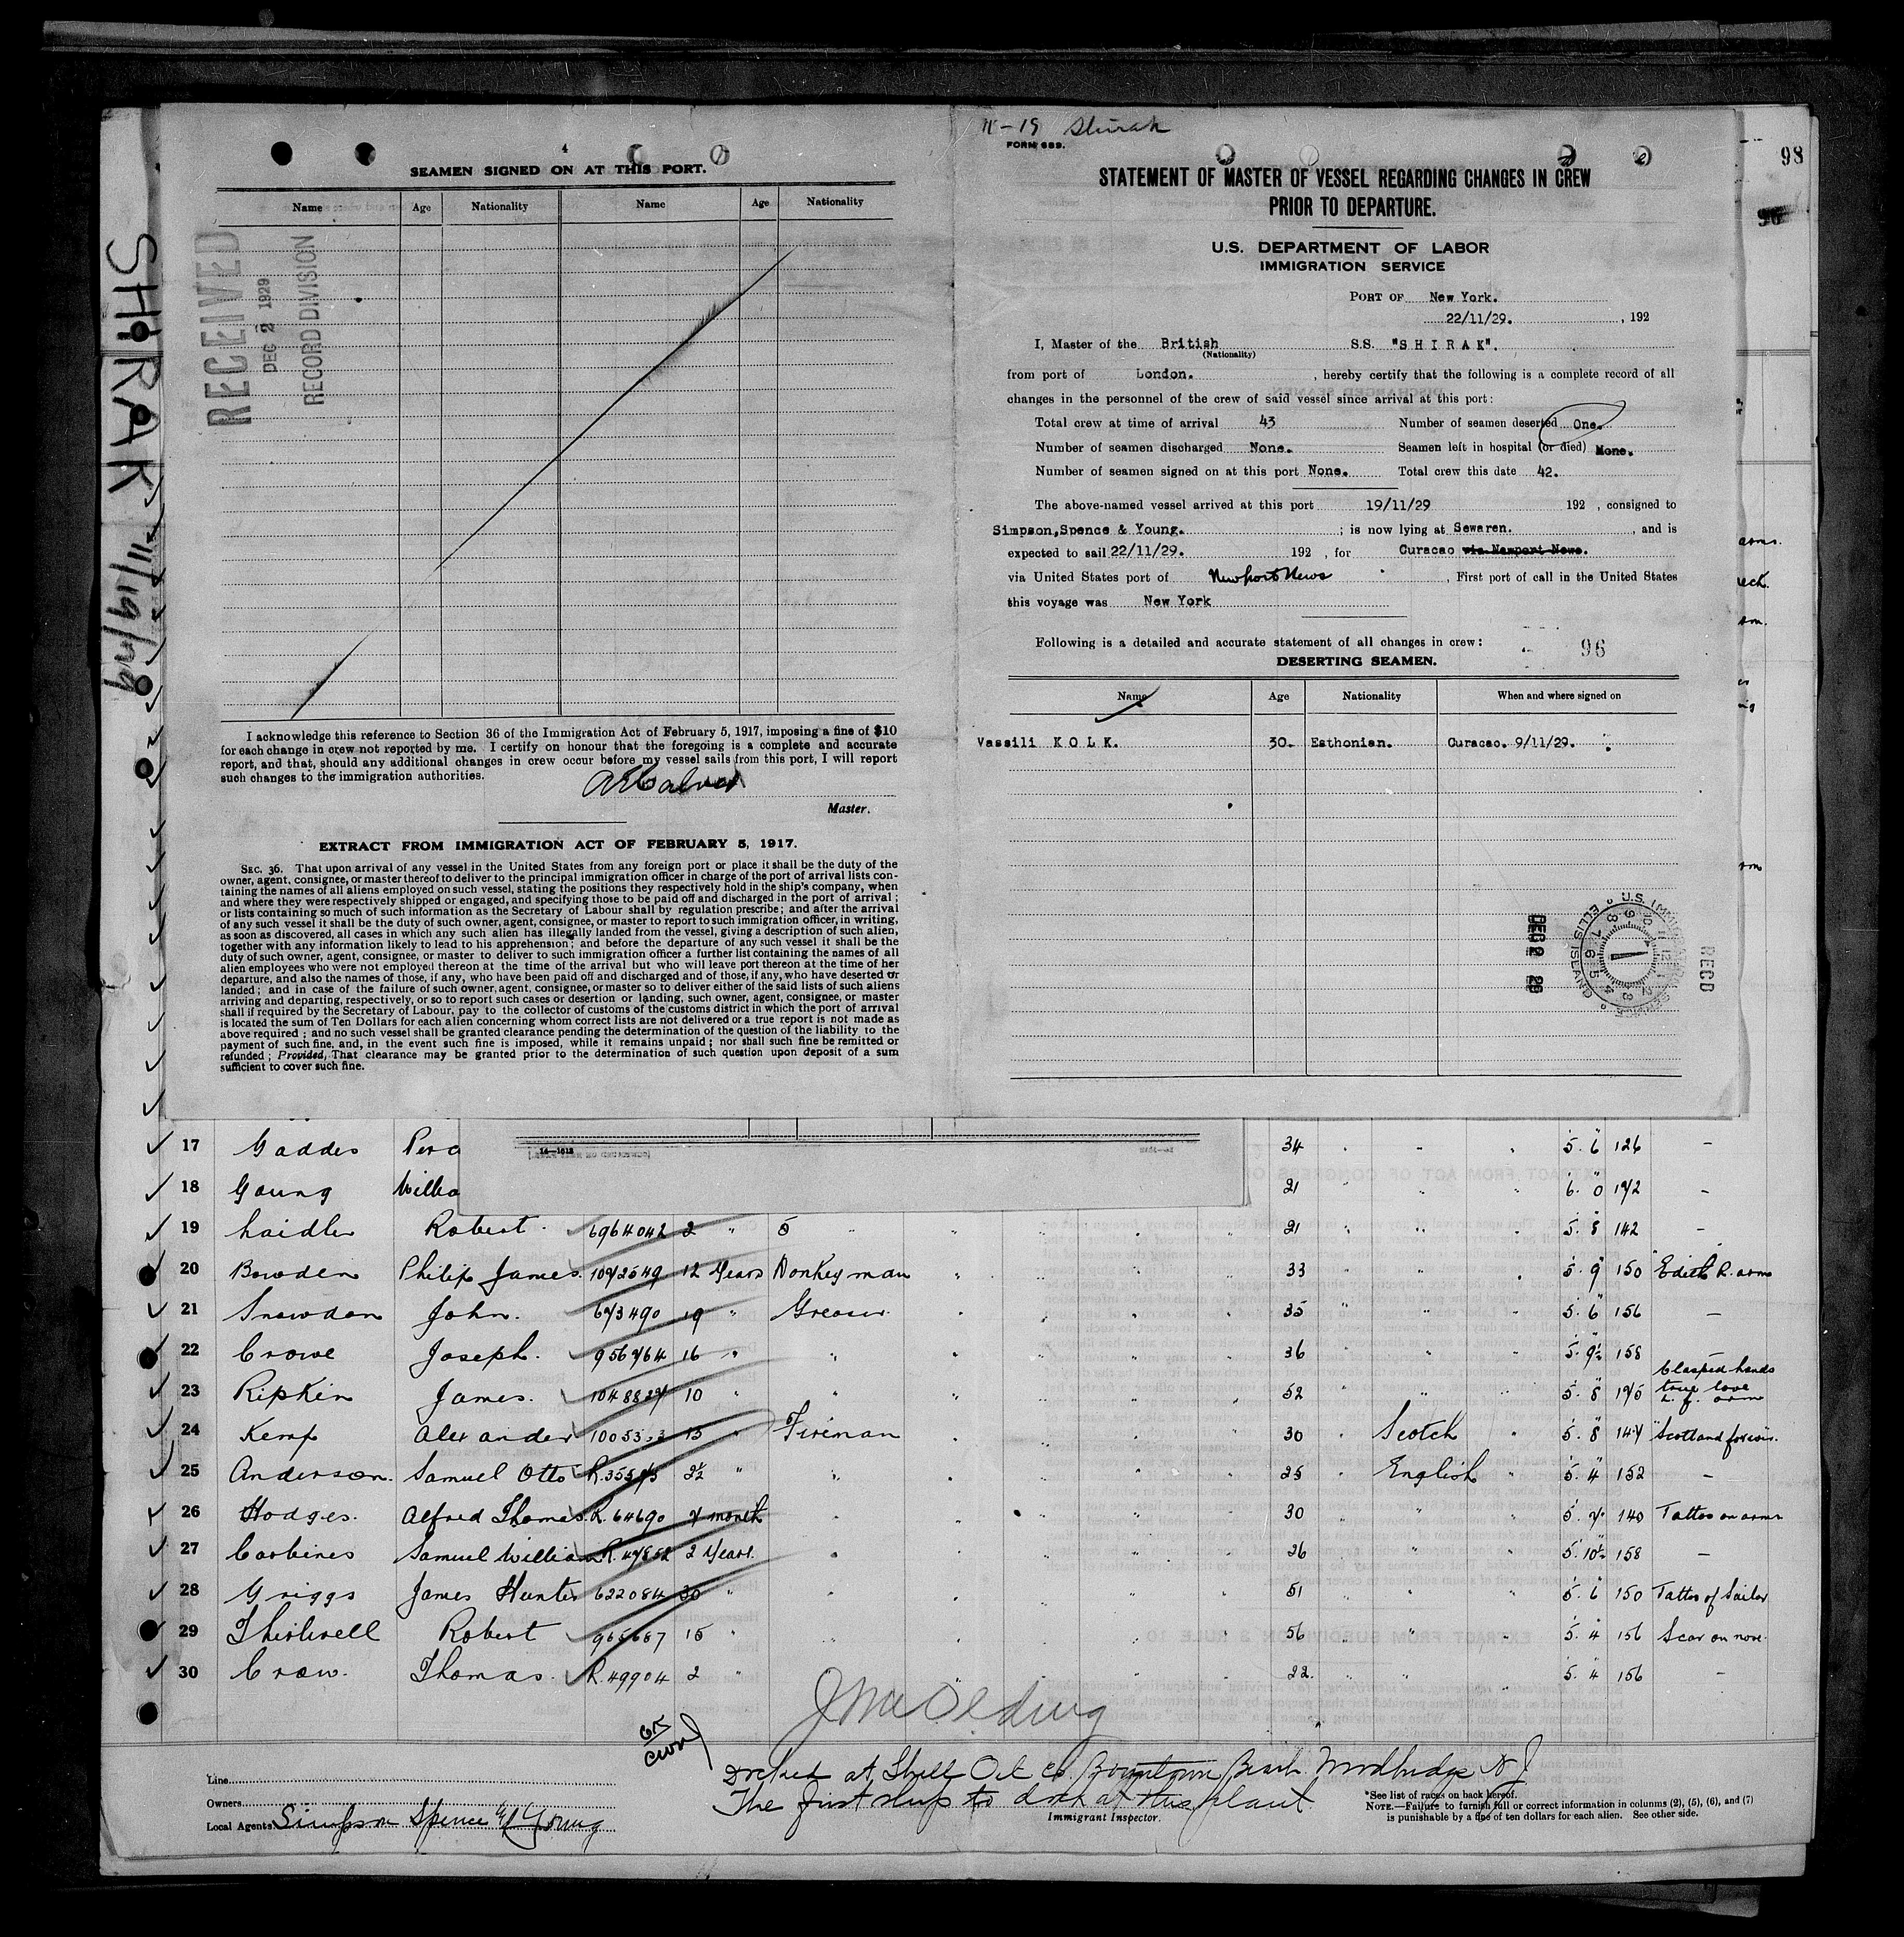 SHIRAK 11/19/29
4
SEAMEN SIGNED ON AT THIS PORT.
Name Age Nationality Name Age Nationality
RECEIVED
DEC 2 1929
RECORD DIVISION
I acknowledge this reference to Section 36 of the Immigration Act of February 5, 1917, imposing a fine of $10
for each change in crew not reported by me. I certify on honour that the foregoing is a complete and accurate
report, and that, should any additional changes in crew occur before my vessel sails from this port, I will report
such changes to the immigration authorities.
Master.
EXTRACT FROM IMMIGRATION ACT OF FEBRUARY 5, 1917.
SEC. 36. That upon arrival of any vessel in the United States from any foreign port or place it shall be the duty of the
owner, agent, consignee, or master thereof to deliver to the principal immigration officer in charge of the port of arrival lists con-
taining the names of all aliens employed on such vessel, stating the positions they respectively hold in the ship's company, when
and where they were respectively shipped or engaged, and specifying those to be paid off and discharged in the port of arrival ;
or lists containing so much of such information as the Secretary of Labour shall by regulation prescribe ; and after the arrival
of any such vessel it shall be the duty of such owner, agent, consignee, or master to report to such immigration officer, in writing,
as soon as discovered, all cases in which any such alien has illegally landed from the vessel, giving a description of such alien,
together with any information likely to lead to his apprehension ; and before the departure of any such vessel it shall be the
duty of such owner, agent, consignee, or master to deliver to such immigration officer a further list containing the names of all
alien employees who were not employed thereon at the time of the arrival but who will leave port thereon at the time of her
departure, and also the names of those, if any, who have been paid off and discharged and of those, if any, who have deserted or
landed ; and in case of the failure of such owner, agent, consignee, or master so to deliver either of the said lists of such aliens
arriving and departing, respectively, or so to report such cases or desertion or landing, such owner, agent, consignee, or master
shall if required by the Secretary of Labour, pay to the collector of customs of the customs district in which the port of arrival
is located the sum of Ten Dollars for each alien concerning whom correct lists are not delivered or a true report is not made as
above required ; and no such vessel shall be granted clearance pending the determination of the question of the liability to the
payment of such fine, and, in the event such fine is imposed, while it remains unpaid ; nor shall such fine be remitted or
refunded ; Provided, That clearance may be granted prior to the determination of such question upon deposit of a sum
sufficient to cover such fine.
Shirak
FORM 689.
STATEMENT OF MASTER OF VESSEL REGARDING CHANGES IN CREW
PRIOR TO DEPARTURE.
U.S. DEPARTMENT OF LABOR
IMMIGRATION SERVICE
PORT OF New York.
22/11/29. , 192
I, Master of the British S.S. "SHIRAK".
(Nationality)
from port of London. , hereby certify that the following is a complete record of all
changes in the personnel of the crew of said vessel since arrival at this port :
Total crew at time of arrival 43 Number of seamen deserted One.
Number of seamen discharged None. Seamen left in hospital (or died) None.
Number of seamen signed on at this port None. Total crew this date 42.
The above-named vessel arrived at this port 19/11/29 192 , consigned to
Simpson,Spence & Young. ; is now lying at Sewaren. , and is
expected to sail 22/11/29. 192 , for Curacao via Newport News.
via United States port of Newport News . , First port of call in the United States
this voyage was New York
Following is a detailed and accurate statement of all changes in crew :
96
DESERTING SEAMEN.
Name Age Nationality When and where signed on
Vassili KOLK. 30. Esthonian. Curacao. 9/11/29.
DEC 2 29
U.S. IMMIGRATION SERVICE ELLIS ISLAND
RECD
98
96
17 Gaddes 34 5. 6 126 -
18 Young 21 6. 0 172 -
19 Laidler Robert 6964042 2 " 21 5. 8 142 -
20 Bowden Philip James 1072549 12 Years Donkeyman 33 5. 9 150 Edith R. arm
21 Snowdon John. 673490 19 " Greaser 35 5. 6 156 -
22 Crowe Joseph. 956764 16 " " 36 5. 9½ 158
23 Ripkin James. 1048827 10 " " 52 5. 8 175 Clasped hands true love L. f. arm
24 Kemp Alexander 15 " Fireman 30 Scotch 5. 8 147
25 Anderson. Samuel Otto R.35575 2½ " " 25 English 5. 4 152 -
26 Hodges. Alfred Thomas. R.64690 7 month 30 " 5. 7 140 Tattoo on arms
27 Carbines Samuel William R.47852 2 Years. 26 " 5. 10½ 158 -
28 Griggs James Hunter 622084 30 " 51 " 5. 6 150 Tattoo of Sailor
29 Thirlwell Robert 965687 15 " 56 " 5. 4 156 Scar on nose.
30 Crow. Thomas. R.49904 2 " 22. " 5. 4 156 -
Docked at Shell Oil Co. Boyntown Beach Woodbridge N J
The first ship to dock at this plant.
Line
Owners
Local Agents Simpson Spence & Young
Immigrant Inspector.
*See list of races on back hereof.
NOTE.—Failure to furnish full or correct information in columns (2), (5), (6), and (7)
is punishable by a fine of ten dollars for each alien. See other side.